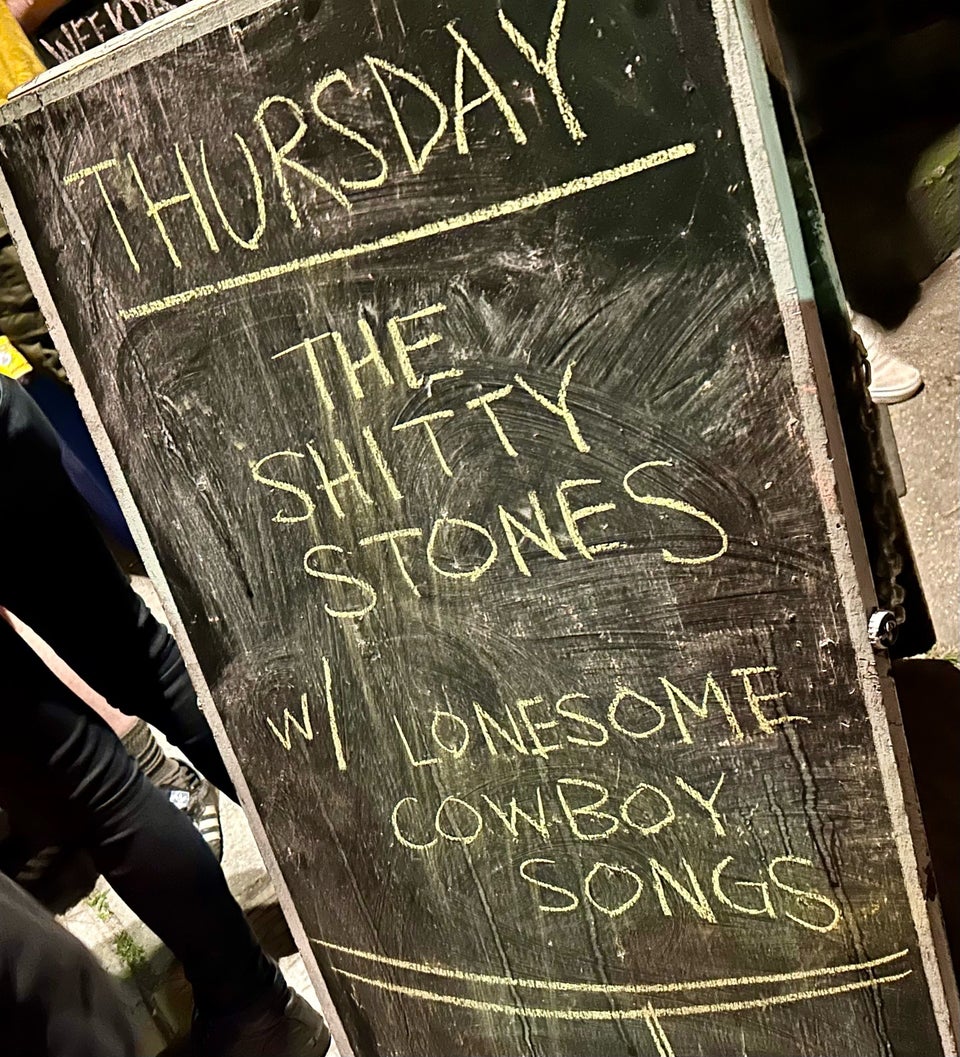 THURSDAY
THE
SHITTY
STONES
W/ LONESOME
COWBOY
SONGS